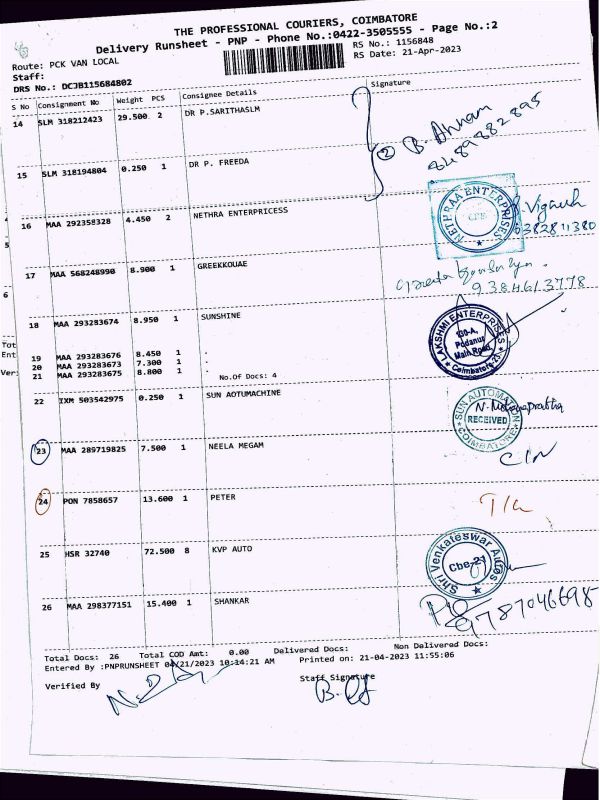 THE PROFESSIONAL COURIERS, COIMBATORE
Delivery Runsheet - PNP - Phone No.:0422-3505555 - Page No.:2
Route: PCK VAN LOCAL
RS No.: 1156848
Staff:
RS Date: 21-Apr-2023
DRS No.: DCJB115684802
S No Consignment No Weight PCS Consignee Details Signature
14 SLM 318212423 29.500 2 DR P.SARITHASLM
2 B.
8489882895
15 SLM 318194804 0.250 1 DR P. FREEDA
16 MAA 292358328 4.450 2 NETHRA ENTERPRICESS
NETHRAA ENTERPRISES
CBE
6382811380
17 MAA 568248990 8.900 1 GREEKKOUAE
9384613778
18 MAA 293283674 8.950 1 SUNSHINE
LAKSHMI ENTERPRISES
130-A,
Podanur
Main Road,
Coimbatore-23
19 MAA 293283676 8.450 1 .
20 MAA 293283673 7.300 1 .
21 MAA 293283675 8.800 1 .
No.Of Docs: 4
22 IXM 503542975 0.250 1 SUN AOTUMACHINE
SUN AUTOMATION
RECEIVED
COIMBATORE
23 MAA 289719825 7.500 1 NEELA MEGAM
24 PON 7858657 13.600 1 PETER
25 HSR 32740 72.500 8 KVP AUTO
Shri Venkateswar Autos
Cbe-21
26 MAA 298377151 15.400 1 SHANKAR
9787046698
Total Docs: 26 Total COD Amt: 0.00 Delivered Docs: Non Delivered Docs:
Entered By :PNPRUNSHEET 04/21/2023 10:14:21 AM Printed on: 21-04-2023 11:55:06
Verified By
Staff Signature